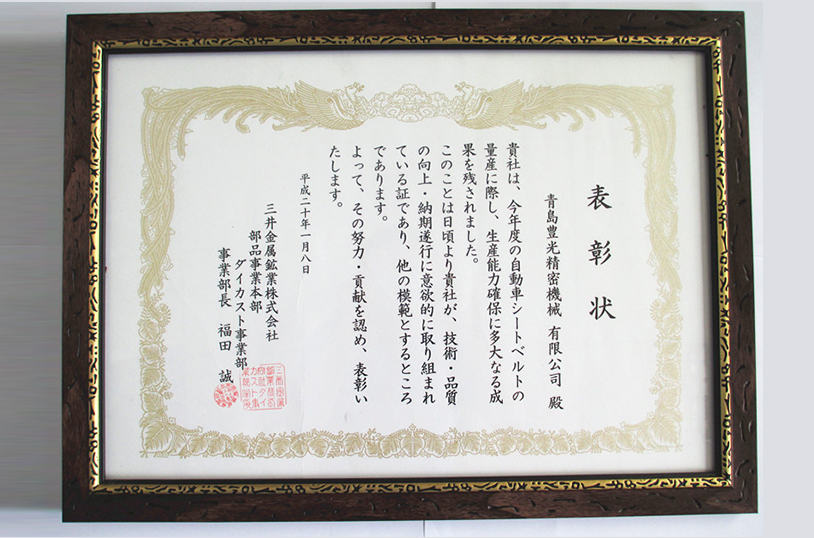 表彰状
青島豊光精密機械 有限公司 殿
貴社は、今年度の自動車シートベルトの
量産に際し、生産能力確保に多大なる成
果を残されました。
このことは日頃より貴社が、技術・品質
の向上・納期遂行に意欲的に取り組まれ
ている証であり、他の模範とするところ
であります。
よって、その努力・貢献を認め、表彰い
たします。
平成二十年一月八日
三井金属鉱業株式会社
部品事業本部
ダイカスト事業部
事業部長 福田 誠